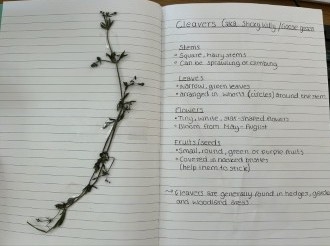 Cleavers (aka Sticky Willy / Goose grass
Stems
• Square, hairy stems
• Can be sprawling or climbing
Leaves
• Narrow, green leaves
• Arranged in whorls (circles) around the stem
Flowers
• Tiny, white, star-shaped flowers
• Bloom from May-August
Fruits/Seeds
• Small, round, green or purple fruits
• Covered in hooked bristles
(help them to stick)
Cleavers are generally found in hedges,
and woodland areas